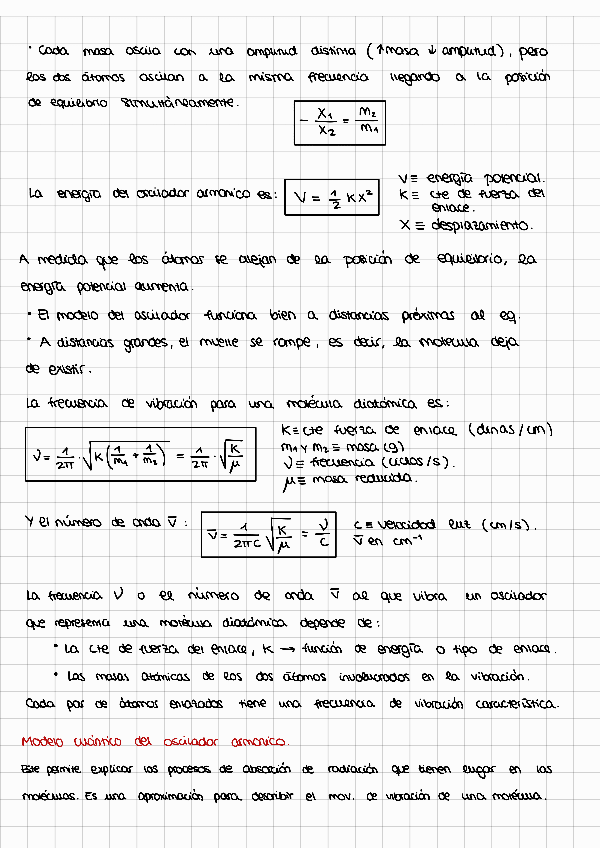 · Cada masa oscila con una amplitud distinta (↑masa ↓ amplitud), pero
los dos átomos oscilan a la misma frecuencia llegando a la posición
de equilibrio simultáneamente.
- X₁/X₂ = m₂/m₁
La energía del oscilador armonico es: V = 1/2 K X²
V ≡ energía potencial.
K ≡ cte de fuerza del
enlace.
X ≡ desplazamiento.
A medida que los átomos se alejan de la posición de equilibrio, la
energía potencial aumenta.
· El modelo del oscilador funciona bien a distancias próximas al eq.
· A distancias grandes, el muelle se rompe, es decir, la molecula deja
de existir.
La frecuencia de vibración para una molécula diatómica es:
ν = 1/2π · √K(1/m₁ + 1/m₂) = 1/2π · √K/μ
K ≡ cte fuerza de enlace (dinas/cm)
m₁ y m₂ ≡ masa (g)
ν ≡ frecuencia (ciclos/s).
μ ≡ masa reducida.
Y el número de onda ν̅ : ν̅ = 1/2πc √K/μ = ν/c
c ≡ velocidad luz (cm/s).
ν̅ en cm⁻¹
La frecuencia ν o el número de onda ν̅ al que vibra un oscilador
que representa una molécula diatómica depende de:
· La cte de fuerza del enlace, K → función de energía o tipo de enlace.
· Las masas atómicas de los dos átomos involucrados en la vibración.
Cada par de átomos enlazados tiene una frecuencia de vibración característica.
Modelo cuántico del oscilador armonico.
Este permite explicar los procesos de absorción de radiación que tienen lugar en las
moléculas. Es una aproximación para describir el mov. de vibración de una molécula.